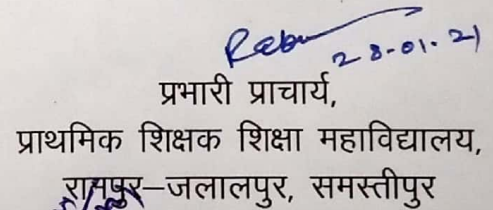 28-01-21
प्रभारी प्राचार्य,
प्राथमिक शिक्षक शिक्षा महाविद्यालय,
रामपुर–जलालपुर, समस्तीपुर